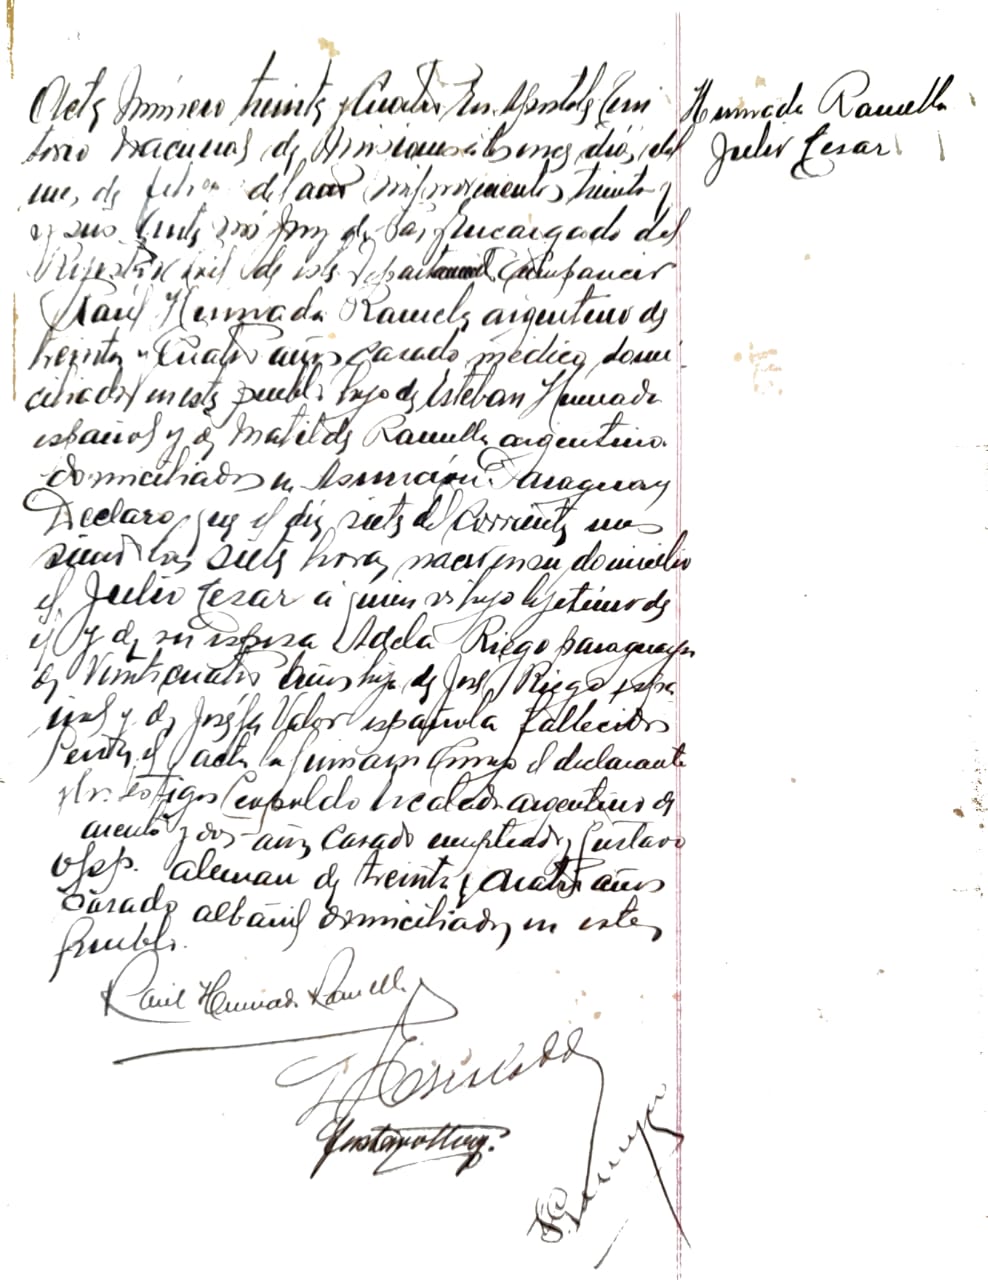 Acta Número treinta y Cuatro En Apostoles Terri
torio Nacional de Misiones a los nes dias del
mes de febrero del año mil novecientos treinta y
y seis Ante mi Encargado del
Registro Civil de este Departamento Comparecio
Raúl Hermada Ramella argentino de
treinta y Cuatro años Casado médico domi
ciliado en este pueblo hijo de Esteban Hermada
español y de Matilde Ramella argentino
domiciliados en Asunción Paraguay
Declaro que el dia siete del Corriente mes
siendo las siete horas nacio en su domicilio
el Julio Cesar a quien es hijo lejitimo de
el y de su esposa Adela Riego paraguaya
de Veinticuatro años hija de José Riego espa
ñol y de Josefa Valor española fallecidos
el acta la firmaron Conmigo el declarante
y los testigos Leopoldo argentino de
y dos años Casado empleado y Gustavo
aleman de treinta y Cuatro años
Casado albañil domiciliados en este
pueblo.
Hermada Ramella
Julio Cesar
Raúl Hermada Ramella
Gustavo